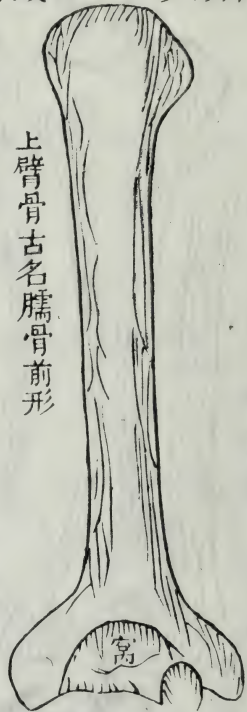 上臂骨古名臑骨前形
窝